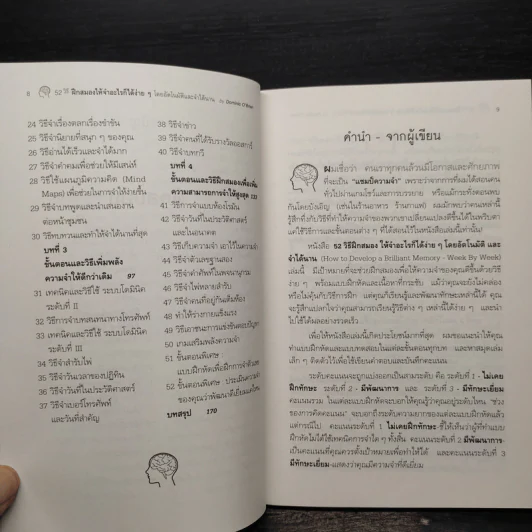 8 52 วิธีฝึกสมองให้จำอะไรก็ได้ง่าย ๆ โดยอัตโนมัติและจำได้นาน
24 วิธีจำเรื่องตลกเรื่องขำขัน
25 วิธีจำนิยายที่สนุก ๆ ของคุณ
26 วิธีอ่านได้เร็วและจำได้มาก
27 วิธีจำคำคมเพื่อช่วยให้มีเสน่ห์
28 วิธีใช้แผนภูมิความคิด (Mind
Maps) เพื่อช่วยในการจำให้ง่ายขึ้น
29 วิธีจำบทพูดและนำเสนองาน
ต่อหน้าชุมชน
30 วิธีทบทวนและทำให้จำได้นานที่สุด
บทที่ 3
ขั้นตอนและวิธีเพิ่มพลัง
ความจำให้ดีกว่าเดิม 97
31 เทคนิคและวิธีใช้ ระบบโดมินิค
ระดับที่ II
32 วิธีจำบทสนทนาทางโทรศัพท์
33 เทคนิคและวิธีใช้ ระบบโดมินิค
ระดับที่ III
34 วิธีจำสำรับไพ่
35 วิธีจำวันเวลาของปฏิทิน
36 วิธีจำวันที่ในประวัติศาสตร์
37 วิธีจำเบอร์โทรศัพท์
และวันที่สำคัญ
38 วิธีจำข่าว
39 วิธีจำคนที่ได้รับรางวัลออสการ์
40 วิธีจำบทกวี
บทที่ 4
ขั้นตอนและวิธีฝึกสมองเพื่อเพิ่ม
ความสามารถการจำให้สูงสุด
41 วิธีการจำแบบห้องโรมัน
42 วิธีจำวันที่ในประวัติศาสตร์
และในอนาคต
43 วิธีเก็บความจำ เอาไว้ในความจำ
44 วิธีจำตัวเลขฐานสอง
45 วิธีจำคำศัพท์ในพจนานุกรม
46 วิธีจำไพ่หลายสำรับ
47 วิธีจำคนที่อยู่กันเต็มห้อง
48 ทำให้ร่างกายแข็งแรง
49 วิธีเอาชนะการแข่งขันตอบปัญหา
50 เกมเสริมพลังความจำ
51 ขั้นตอนพิเศษ
แบบฝึกหัดเพื่อฝึกการจำตัวเลข
52 ขั้นตอนพิเศษ ประเมินความจำ
ของคุณว่าพัฒนาดีเยี่ยมแค่ไหน
บทสรุป 170
9
คำนำ - จากผู้เขียน
ผมเชื่อว่า คนเราทุกคนล้วนมีโอกาสและศักยภาพ
ที่จะเป็น "แชมป์ความจำ" เพราะว่าจากการที่ผมได้สอนคน
ทั่วไปผ่านเกมโชว์และการบรรยาย หรือแม้กระทั่งตอนพบ
กันโดยบังเอิญ (เช่นในร้านอาหาร ร้านกาแฟ) ผมมักพบว่าคนเหล่านี้
รู้สึกทึ่งกับวิธีที่ทำให้ความจำของพวกเขาเปลี่ยนแปลงดีขึ้นได้ในพริบตา
แค่ใช้วิธีการและขั้นตอนต่าง ๆ (ที่ได้สอนไว้ในหนังสือเล่มนี้เท่านั้น)
หนังสือ 52 วิธีฝึกสมอง ให้จำอะไรก็ได้ง่าย ๆ โดยอัตโนมัติ และ
จำได้นาน (How to Develop a Brilliant Memory - Week By Week)
เล่มนี้ มีเป้าหมายที่จะช่วยฝึกสมองเพื่อให้ความจำของคุณดีขึ้นด้วยวิธี
ง่าย ๆ พร้อมแบบฝึกหัดและเนื้อหาที่กระชับ แม้ว่าคุณจะยังไม่คล่อง
หรือไม่คุ้นกับวิธีการฝึก แต่คุณก็เรียนรู้และพัฒนาทักษะเหล่านี้ได้ คุณ
จะรู้สึกแปลกใจว่าคุณสามารถเรียนรู้วิธีต่าง ๆ เหล่านี้ง่าย ๆ และนำ
ไปใช้ได้ผลอย่างรวดเร็ว
เพื่อให้หนังสือเล่มนี้เกิดประโยชน์มากที่สุด ผมขอแนะนำให้คุณ
ทำแบบฝึกหัดและแบบทดสอบในแต่ละขั้นตอนทุกบท และหาสมุดเล่ม
เล็ก ๆ ติดตัวไว้เพื่อใช้เขียนคำตอบและบันทึกคะแนน
ระดับคะแนนจะถูกแบ่งออกเป็นสามระดับ คือ ระดับที่ 1 - ไม่เคย
ฝึกทักษะ ระดับที่ 2 - มีพัฒนาการ และ ระดับที่ 3 - มีทักษะเยี่ยม
คะแนนรวม ในแต่ละแบบฝึกหัดจะบอกให้คุณรู้ว่าคุณอยู่ระดับไหน "ช่วง
ของการคิดคะแนน" จะบอกถึงระดับความยากของแต่ละแบบฝึกหัดแล้ว
แต่กรณีไป คะแนนระดับที่ 1 ไม่เคยฝึกทักษะ-ชี้ให้เห็นว่าผู้ที่ทำแบบ
ฝึกหัดไม่ได้ใช้เทคนิคการจำใด ๆ ทั้งสิ้น คะแนนระดับที่ 2 มีพัฒนาการ-
เป็นคะแนนที่คุณควรตั้งเป้าหมายเพื่อทำให้ได้ และคะแนนระดับที่ 3
มีทักษะเยี่ยม-แสดงว่าคุณมีความจำที่ดีเยี่ยม